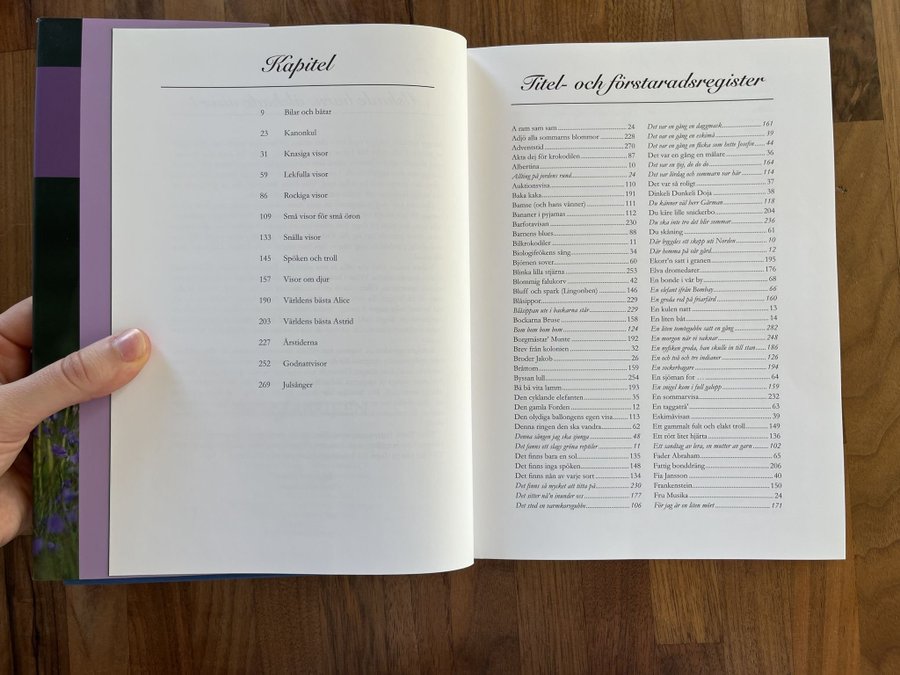 Kapitel
9 Bilar och båtar
23 Kanonkul
31 Knasiga visor
59 Lekfulla visor
86 Rockiga visor
109 Små visor för små öron
133 Snälla visor
145 Spöken och troll
157 Visor om djur
190 Världens bästa Alice
203 Världens bästa Astrid
227 Årstiderna
252 Godnattvisor
269 Julsånger
Titel- och förstaradsregister
A ram sam sam 24
Adjö alla sommarns blommor 228
Adventstid 270
Akta dej för krokodilen 87
Albertina 10
Allting på jordens rund 24
Auktionsvisa 110
Baka kaka 191
Bamse (och hans vänner) 111
Bananer i pyjamas 112
Barfotavisan 230
Barnens blues 88
Bilkrokodiler 11
Biologfrökens sång 34
Björnen sover 60
Blinka lilla stjärna 253
Blommig falukorv 42
Bluff och spark (Lingonben) 146
Blåsippor 229
Blåsippan ute i backarna står 229
Bockarna Bruse 158
Bom bom bom bom 124
Borgmästar' Munte 192
Brev från kolonien 32
Broder Jakob 26
Bråttom 159
Byssan lull 254
Bä bä vita lamm 193
Den cyklande elefanten 35
Den gamla Forden 12
Den olydiga ballongens egen visa 113
Denna ringen den ska vandra 62
Denna sången jag ska sjunga 48
Det fanns ett slags gröna reptiler 11
Det finns bara en sol 135
Det finns inga spöken 148
Det finns nån av varje sort 134
Det finns så mycket att titta på 230
Det sitter nå'n inunder oss 177
Det stod en varmkorvgubbe 106
Det var en gång en daggmask 161
Det var en gång en eskimå 39
Det var en gång en flicka som hette Josefin 44
Det var en gång en målare 36
Det var en tjej, do do do 164
Det var lördag och sommarn var här 114
Det var så roligt 37
Dinkeli Dunkeli Doja 38
Du känner väl herr Gurman 118
Du käre lille snickerbo 204
Du ska inte tro det blir sommar 236
Du skåning 61
Där byggdes ett skepp uti Norden 10
Där hemma på vår gård 12
Ekorr'n satt i granen 195
Elva dromedarer 176
En bonde i vår by 68
En elefant ifrån Bombay 66
En groda red på friarfärd 160
En kulen natt 13
En liten båt 14
En liten tomtegubbe satt en gång 282
En morgon när vi vaknar 248
En nyfiken groda, han skulle in till stan 186
En och två och tre indianer 126
En sockerbagare 194
En sjöman för ... 64
En snigel kom i full galopp 159
En sommarvisa 232
En taggatrå' 63
Eskimåvisan 39
Ett gammalt fult och elakt troll 149
Ett rött litet hjärta 136
Ett sandtag av lera, en mutter av garn 102
Fader Abraham 65
Fattig bonddräng 206
Fia Jansson 40
Frankenstein 150
Fru Musika 24
För jag är en liten mört 171